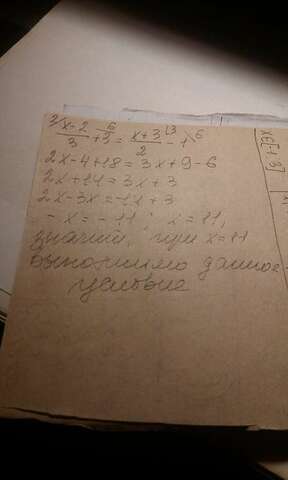 2/ x-2/3 + 3 6/ = x+3/2 /3 - 1 \6
2x-4+18 = 3x+9-6
2x+14=3x+3
2x-3x=-14+3
-x=-11; x=11;
значит, при x=11
выполнимо данное
условие
x∈[-1;3]